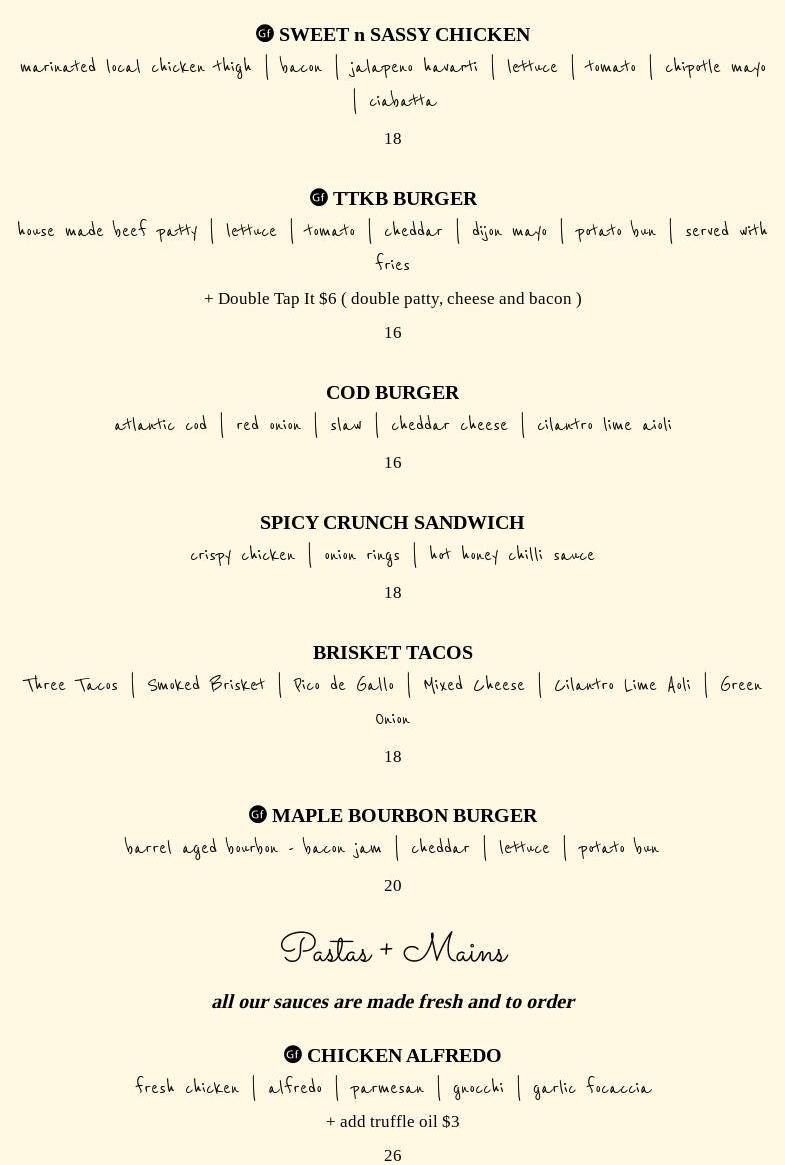 Gf SWEET n SASSY CHICKEN
marinated local chicken thigh | bacon | jalapeno havarti | lettuce | tomato | chipotle mayo
| ciabatta
18
Gf TTKB BURGER
house made beef patty | lettuce | tomato | cheddar | dijon mayo | potato bun | served with
fries
+ Double Tap It $6 ( double patty, cheese and bacon )
16
COD BURGER
atlantic cod | red onion | slaw | cheddar cheese | cilantro lime aioli
16
SPICY CRUNCH SANDWICH
crispy chicken | onion rings | hot honey chilli sauce
18
BRISKET TACOS
Three Tacos | Smoked Brisket | Pico de Gallo | Mixed Cheese | Cilantro Lime Aoli | Green
Onion
18
Gf MAPLE BOURBON BURGER
barrel aged bourbon - bacon jam | cheddar | lettuce | potato bun
20
Pastas + Mains
all our sauces are made fresh and to order
Gf CHICKEN ALFREDO
fresh chicken | alfredo | parmesan | gnocchi | garlic focaccia
+ add truffle oil $3
26